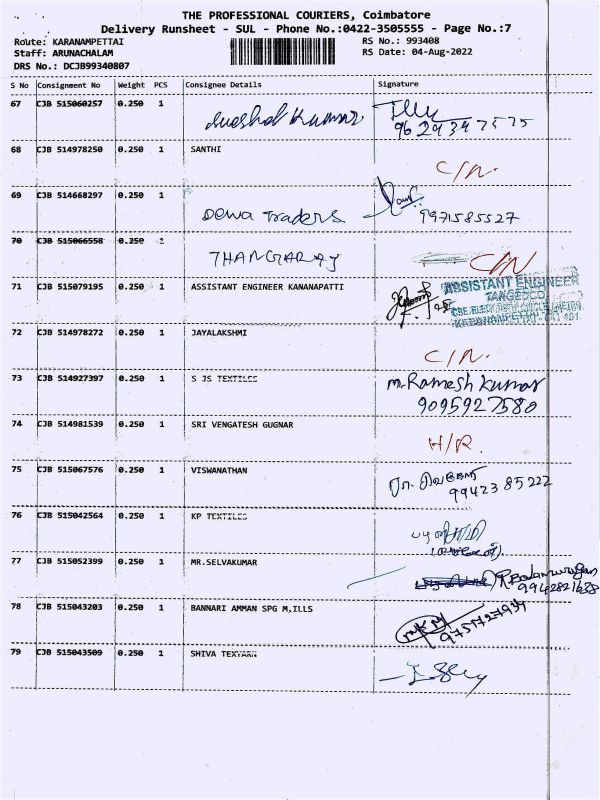 THE PROFESSIONAL COURIERS, Coimbatore
Delivery Runsheet - SUL - Phone No.:0422-3505555 - Page No.:7
Route: KARANAMPETTAI
Staff: ARUNACHALAM
DRS No.: DCJB99340807
RS No.: 993408
RS Date: 04-Aug-2022
S No Consignment No Weight PCS Consignee Details Signature
67 CJB 515060257 0.250 1 Kumar
9629347575
68 CJB 514978250 0.250 1 SANTHI C/N.
69 CJB 514668297 0.250 1 Dewa Traders 9971585527
70 CJB 515066558 0.250 1 THANGARAJ C/N
71 CJB 515079195 0.250 1 ASSISTANT ENGINEER KANANAPATTI ASSISTANT ENGINEER
TANGEDCO
72 CJB 514978272 0.250 1 JAYALAKSHMI C/N.
73 CJB 514927397 0.250 1 S JS TEXTILES M. Ramesh Kumar
9095927580
74 CJB 514981539 0.250 1 SRI VENGATESH GUGNAR H/R.
75 CJB 515067576 0.250 1 VISWANATHAN
99423 85222
76 CJB 515042564 0.250 1 KP TEXTILES
77 CJB 515052399 0.250 1 MR.SELVAKUMAR
9942821638
78 CJB 515043203 0.250 1 BANNARI AMMAN SPG M,ILLS 9751727934
79 CJB 515043509 0.250 1 SHIVA TEXYARN